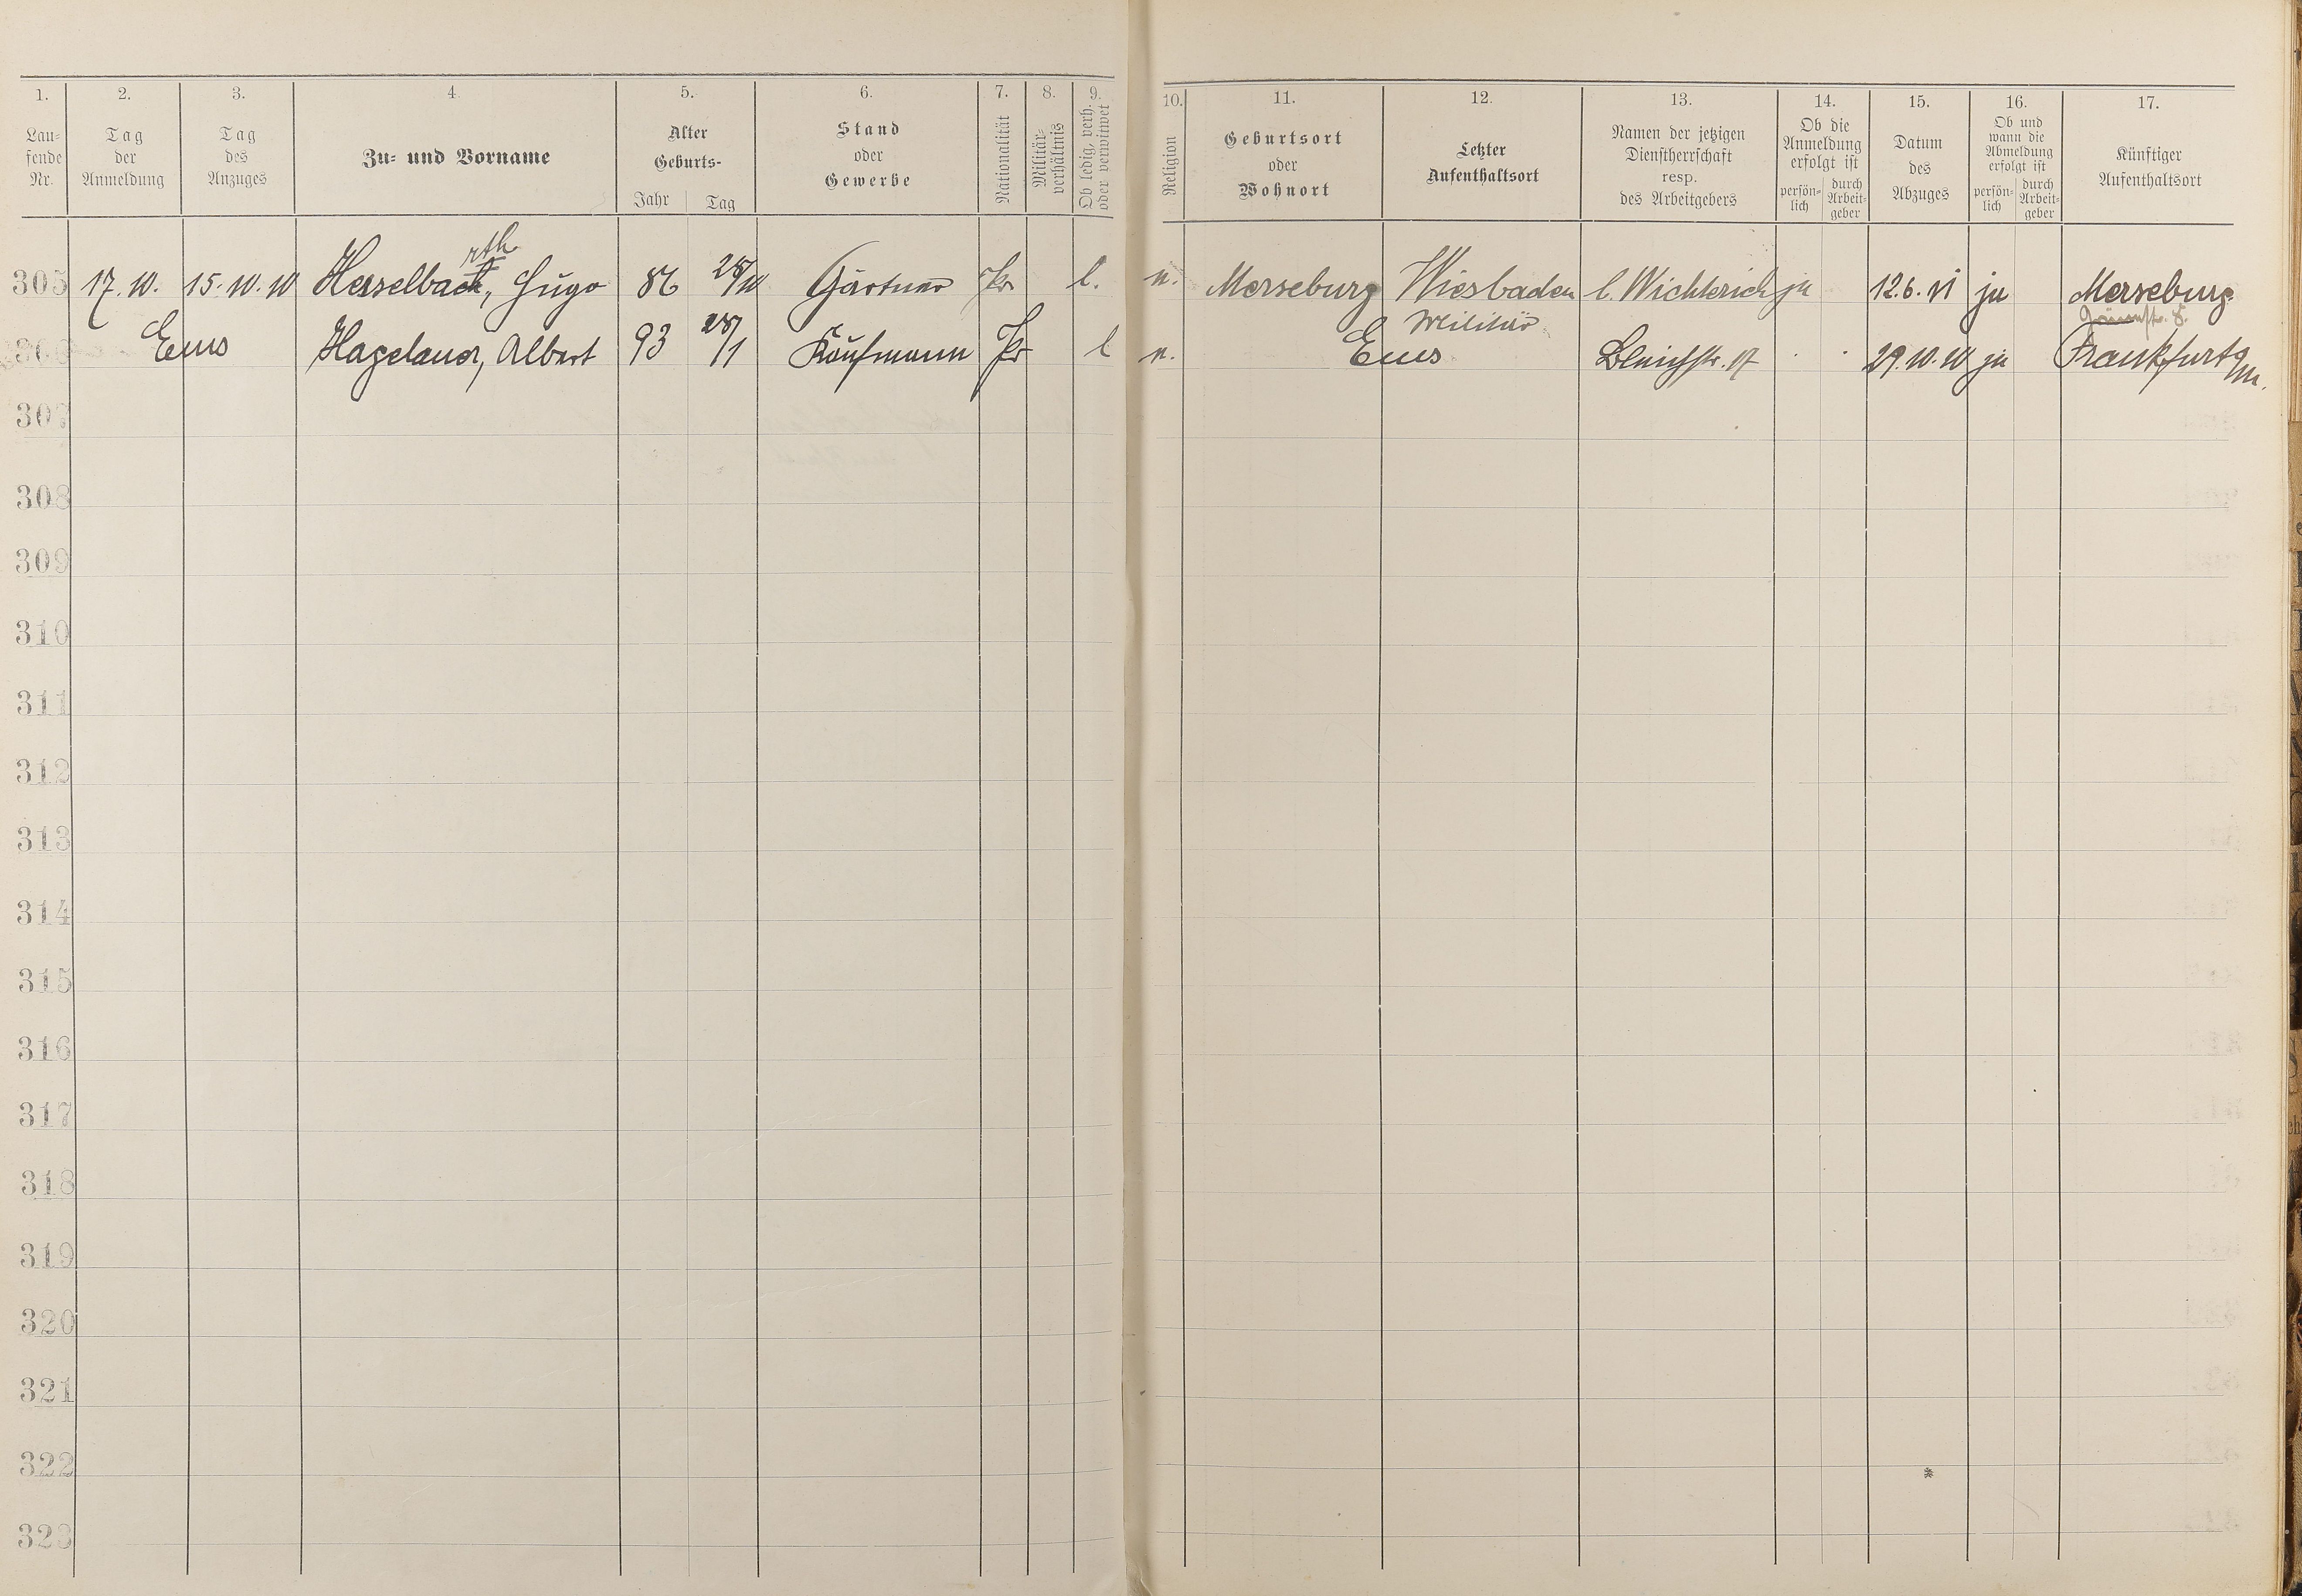 1. 2. 3. 4. 5. 6. 7. 8. 9. 10. 11. 12. 13. 14. 15. 16. 17.
Laufende Nr.
Tag der Anmeldung
Tag des Anzuges
Zu- und Vorname
Alter Geburts- Jahr Tag
Stand oder Gewerbe
Nationalität
Militär-verhältnis
Ob ledig, verh. oder verwitwet
Religion
Geburtsort oder Wohnort
Letzter Aufenthaltsort
Namen der jetzigen Dienstherrschaft resp. des Arbeitgebers
Ob die Anmeldung erfolgt ist persön-lich durch Arbeit-geber
Datum des Abzuges
Ob und wann die Abmeldung erfolgt ist persön-lich durch Arbeit-geber
Künftiger Aufenthaltsort
rth
305 17.10. 15.10.10 Hesselbach, Hugo 86 28/10 Gärtner Pr l. n. Merseburg Wiesbaden l. Wichterich ja 12.6.11 ja Merseburg
Militär
306 Ems Hagelauer, Albert 93 28/1 Kaufmann Pr l n. Ems Bleichstr. 17 29.10.10 ja Frankfurt a/M.
307
308
309
310
311
312
313
314
315
316
317
318
319
320
321
322
323